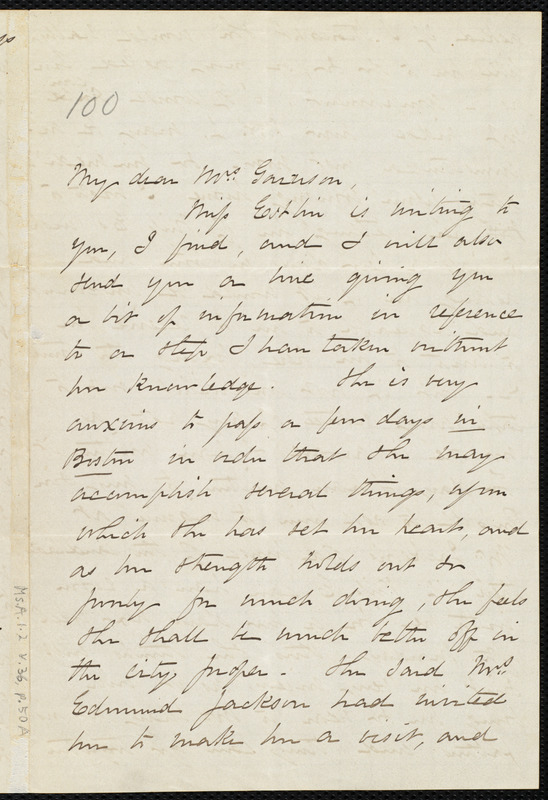 100
My dear Mrs. Garrison,
Miss Estlin is writing to
you, I find, and I will also
send you a line giving you
a bit of information in reference
to a step I have taken without
her knowledge. She is very
anxious to pass a few days in
Boston in order that she may
accomplish several things, upon
which she has set her heart, and
as her strength holds out so
poorly for much doing, she feels
she shall be much better off in
the city proper. She said Mrs.
Edmund Jackson had invited
her to make her a visit, and
Ms.A.1.2 v.36, p.50A